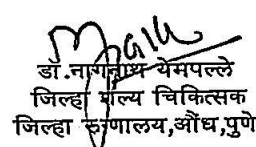 डॉ.नागनाथ येमपल्ले
जिल्हा शल्य चिकित्सक
जिल्हा रुग्णालय,औंध,पुणे